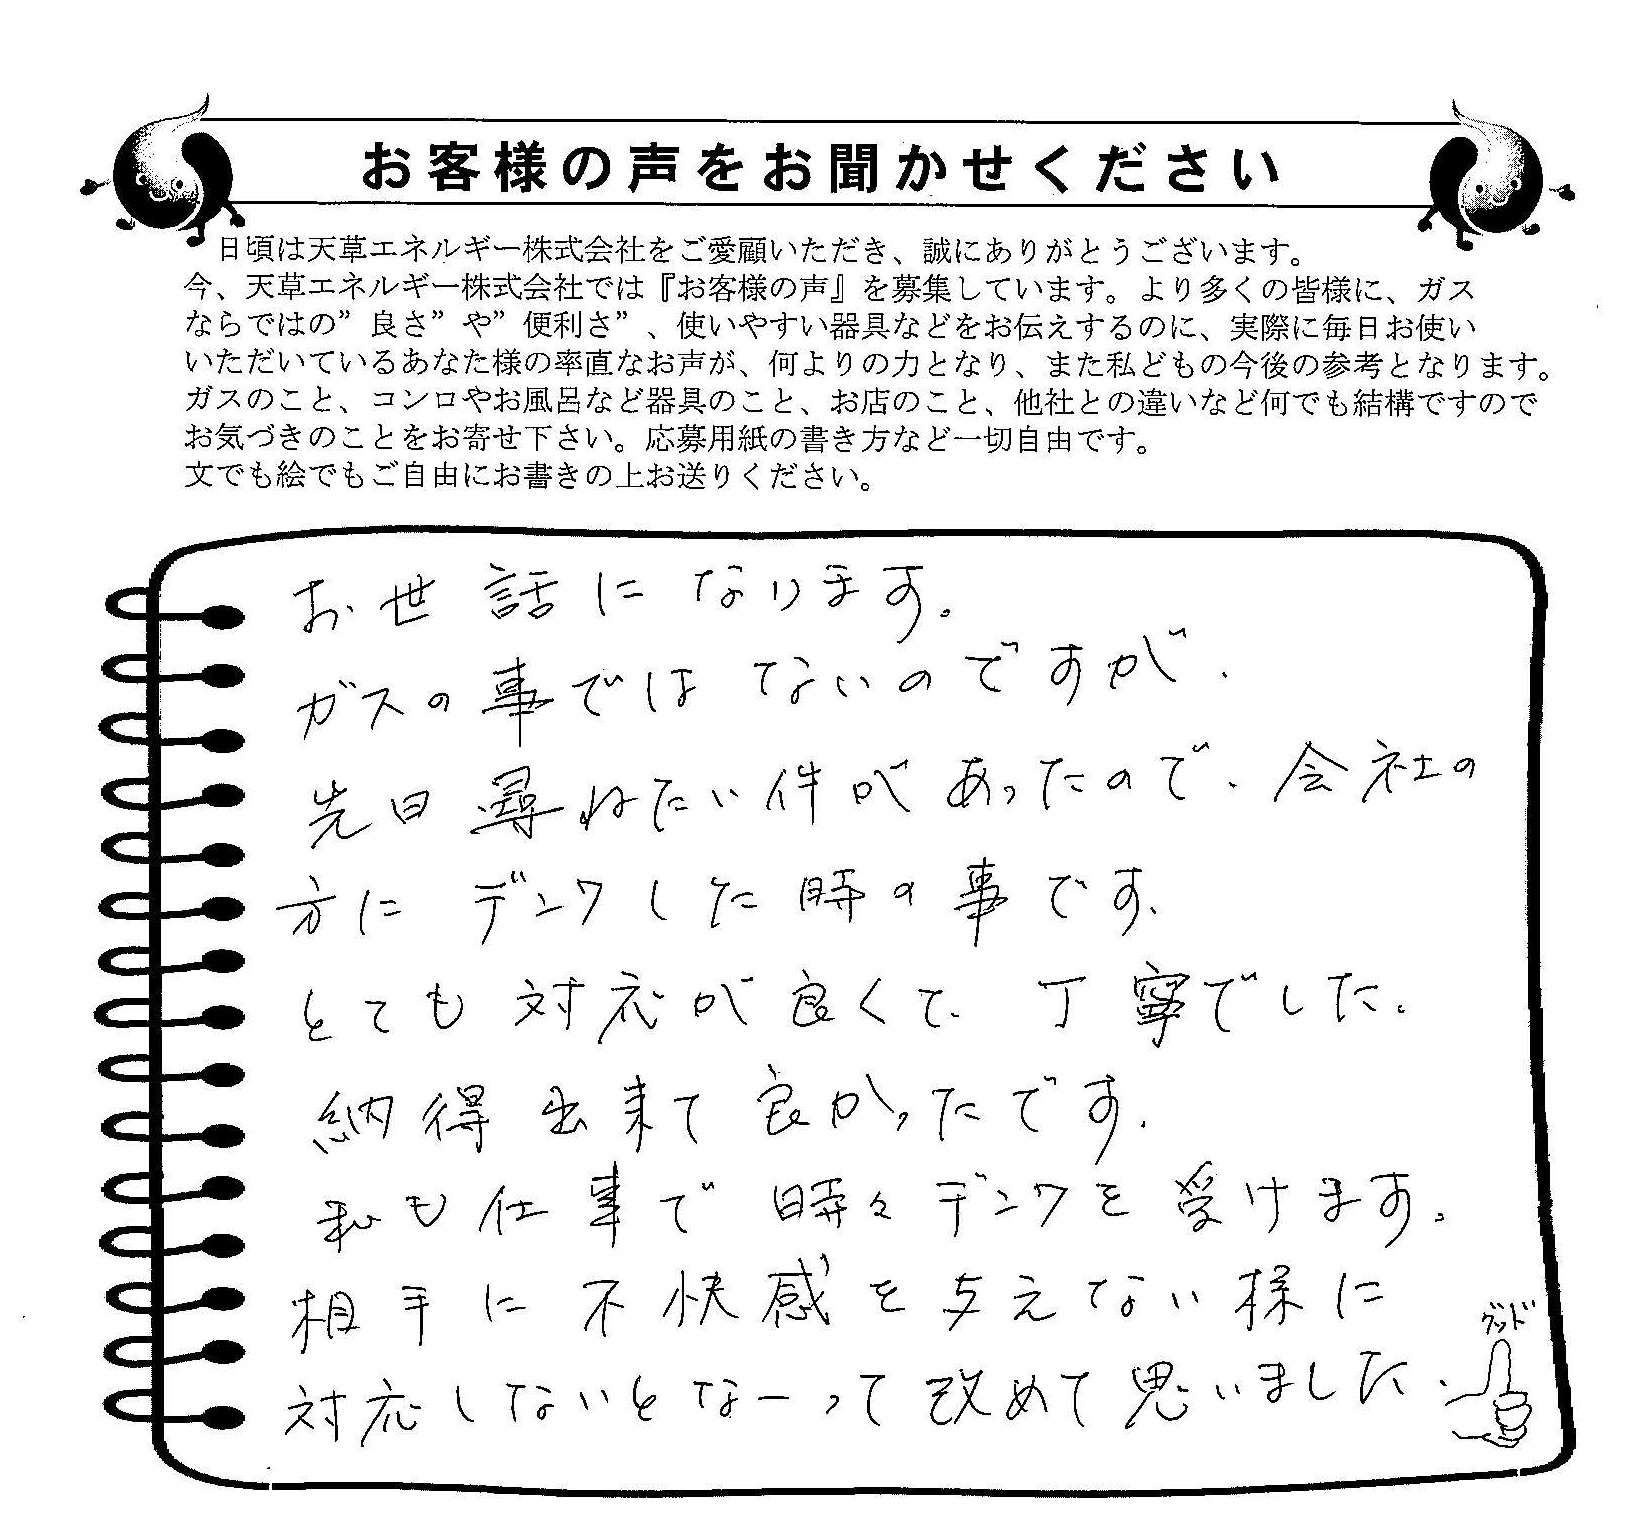 お客様の声をお聞かせください
日頃は天草エネルギー株式会社をご愛顧いただき、誠にありがとうございます。
今、天草エネルギー株式会社では『お客様の声』を募集しています。より多くの皆様に、ガス
ならではの”良さ”や”便利さ”、使いやすい器具などをお伝えするのに、実際に毎日お使い
いただいているあなた様の率直なお声が、何よりの力となり、また私どもの今後の参考となります。
ガスのこと、コンロやお風呂など器具のこと、お店のこと、他社との違いなど何でも結構ですので
お気づきのことをお寄せ下さい。応募用紙の書き方など一切自由です。
文でも絵でもご自由にお書きの上お送りください。
お世話になります。
ガスの事ではないのですが、
先日尋ねたい件があったので、会社の
方にデンワした時の事です。
とても対応が良くて、丁寧でした。
納得出来て良かったです。
私も仕事で時々デンワを受けます。
相手に不快感を与えない様に
対応しないとなーって改めて思いました。
グッド